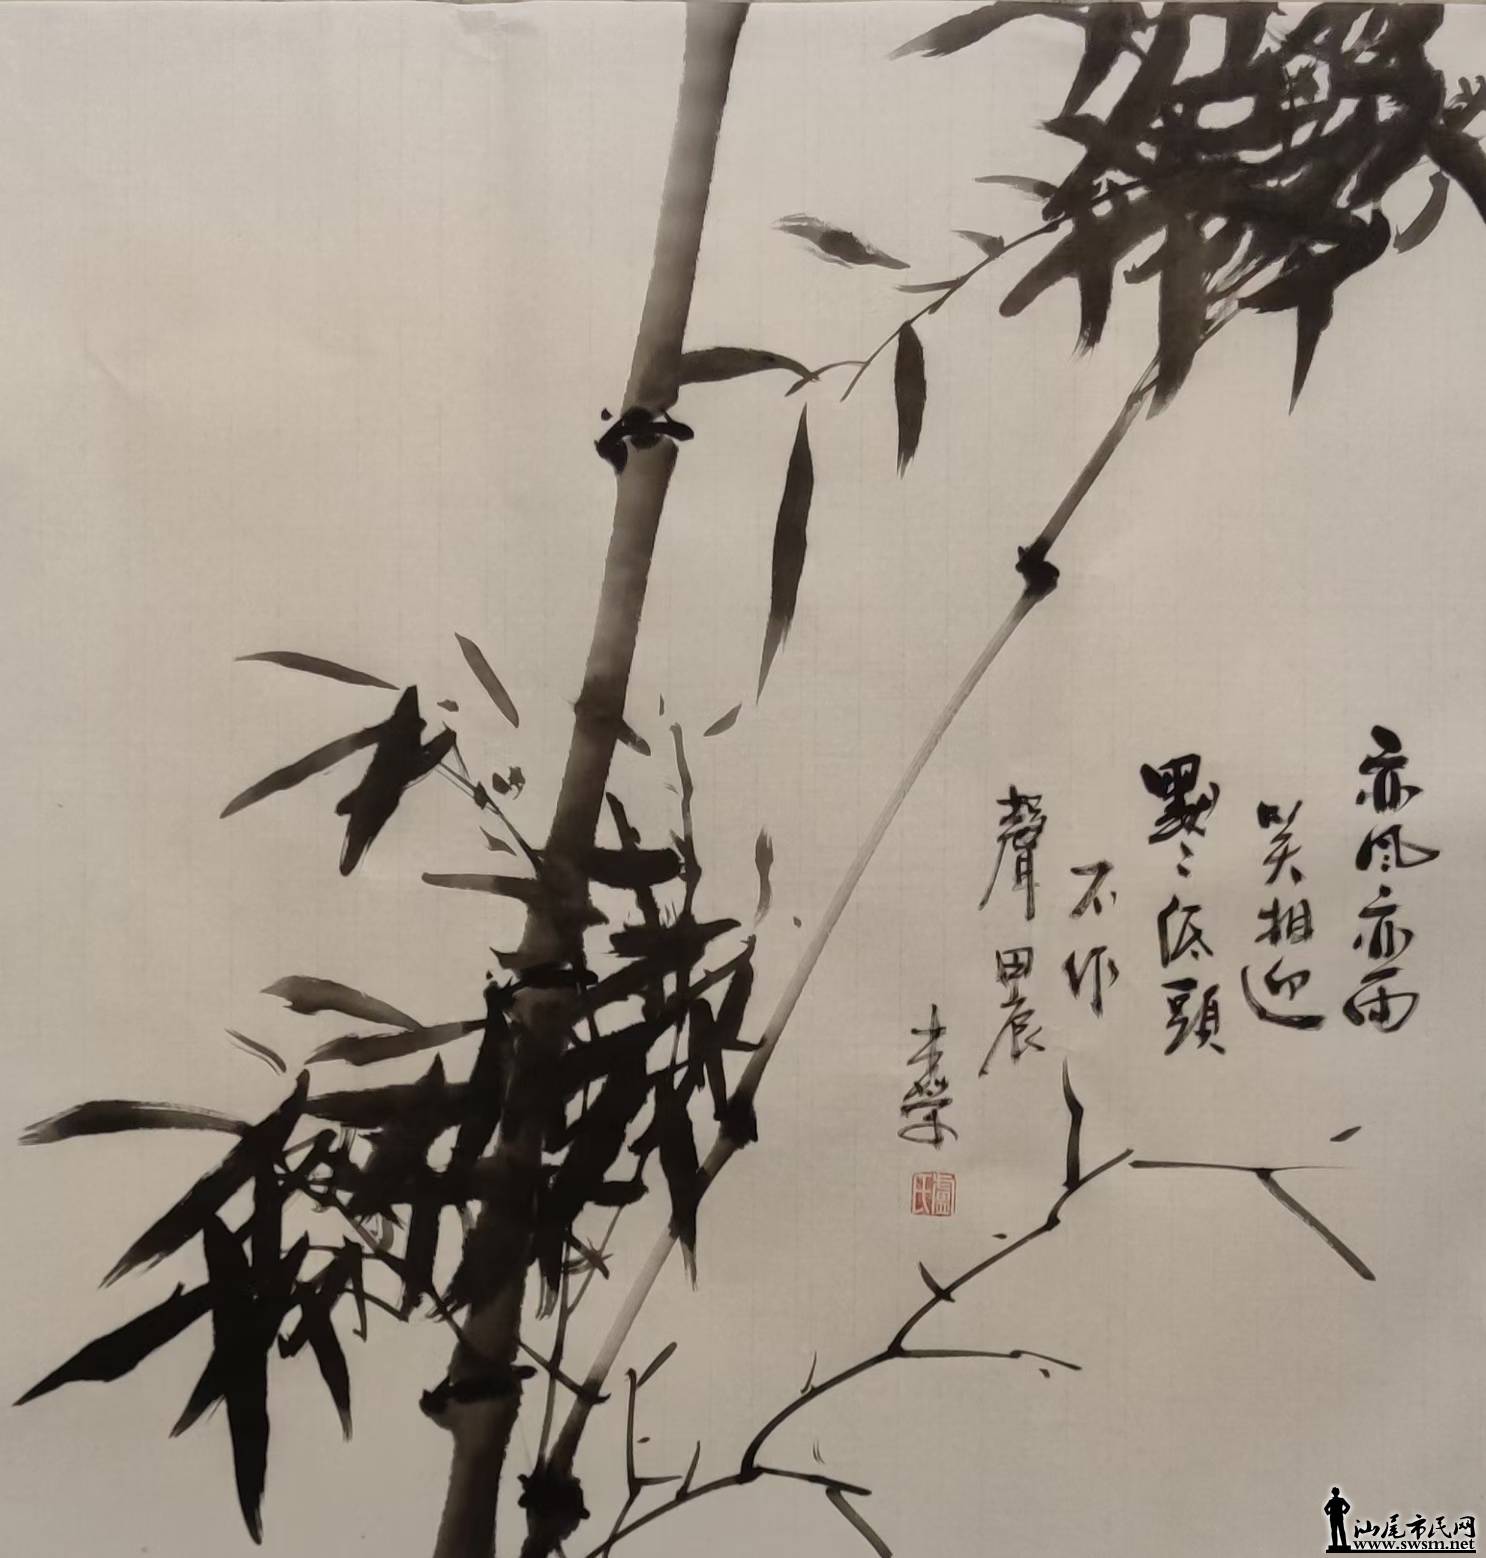 亦风亦雨
笑相迎
默〻低頭
不作
聲 甲辰
士荣
盧氏
汕尾市民网
www.swsm.net